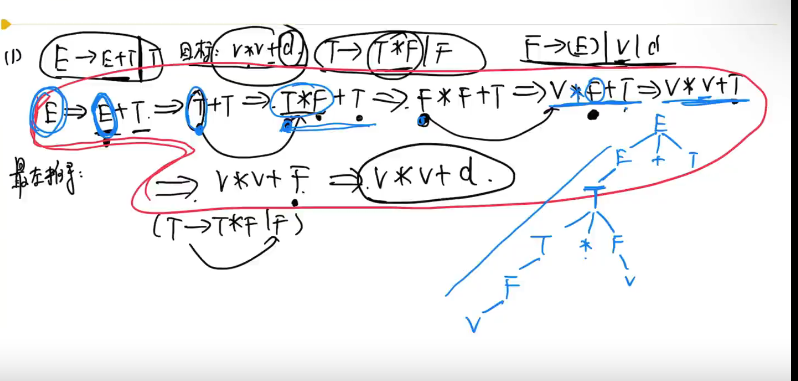 (1) E→E+T|T 目标: v*v+d. T→T*F|F F→(E)|v|d
E⇒E+T⇒T+T⇒T*F+T⇒F*F+T⇒V*F+T⇒V*V+T
最左推导:
⇒v*v+F⇒v*v+d.
(T→T*F|F)
E
E + T
T
T * F
F v
V